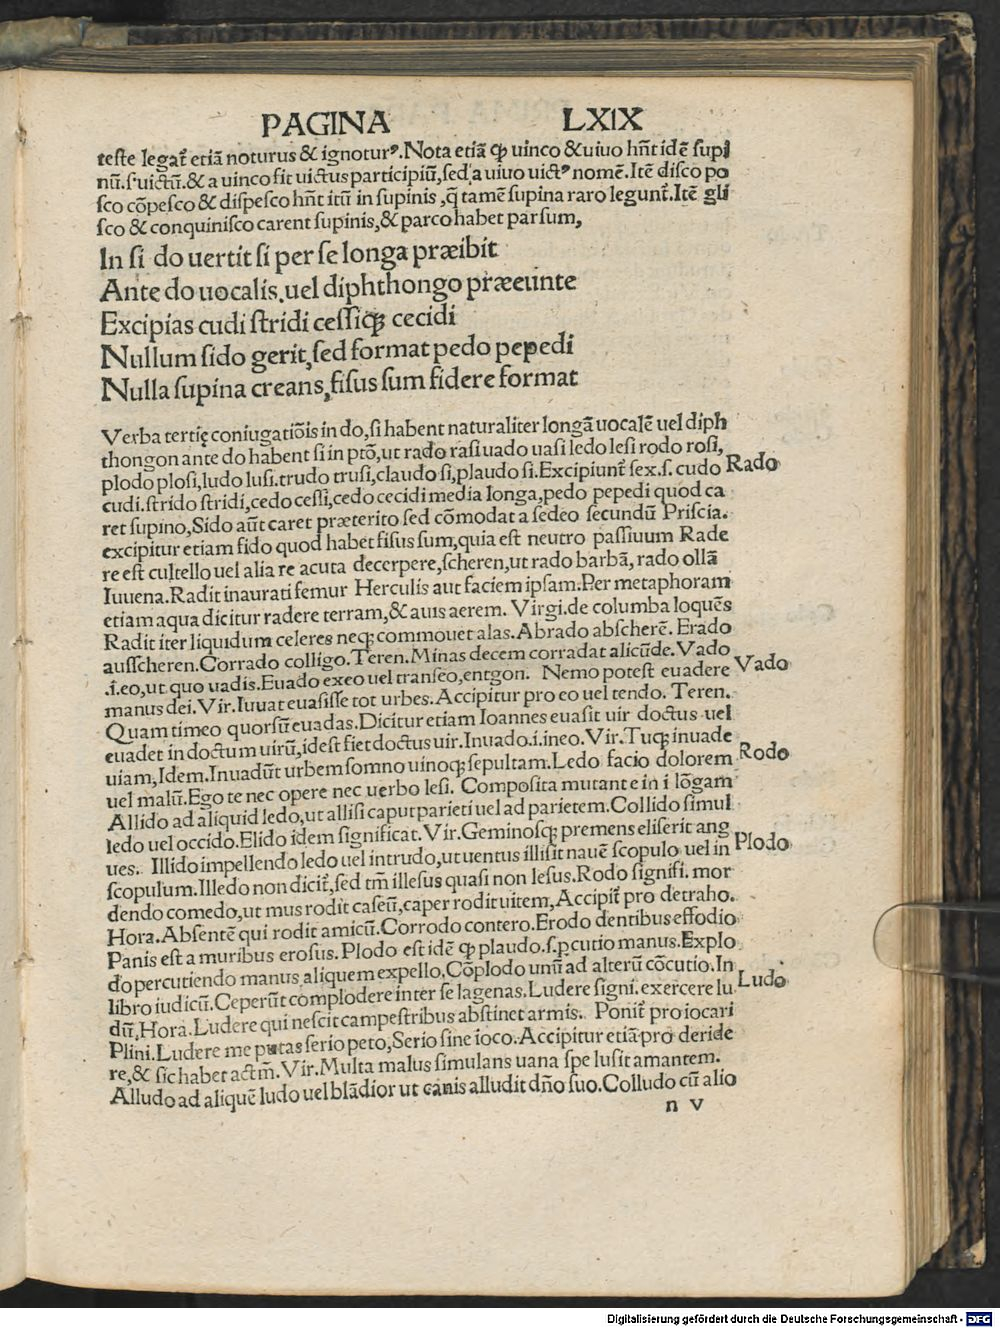 PAGINA LXIX
teste legat᷑ etiā noturus & ignotur⁹. Nota etiā ꝙ uinco & uiuo hn̄t idē supi
nū. s. uictū. & a uinco fit uictus participiū, sed a uiuo uict⁹ nomē. Itē disco po
sco cōpesco & dispesco hn̄t itū in supinis, q̄ tamē supina raro legunt᷑. Itē gli
sco & conquinisco carent supinis, & parco habet parsum,
In si do uertit si per se longa præibit
Ante do uocalis, uel diphthongo præeunte
Excipias cudi stridi cessiqꝫ cecidi
Nullum sido gerit, sed format pedo pepedi
Nulla supina creans, fisus sum fidere format
Verba tertię coniugatiōis in do, si habent naturaliter longā uocalē uel diph
thongon ante do habent si in ptō, ut rado rasi uado uasi ledo lesi rodo rosi,
plodo plosi, ludo lusi. trudo trusi, claudo si, plaudo si. Excipiunt᷑ sex. s. cudo Rado
cudi. strido stridi, cedo cessi, cedo cecidi media longa, pedo pepedi quod ca
ret supino, Sido aūt caret præterito sed cōmodat a sedeo secundū Priscia.
excipitur etiam fido quod habet fisus sum, quia est neutro passiuum Rade
re est cultello uel alia re acuta decerpere, scheren, ut rado barbā, rado ollā
Iuuena. Radit inaurati femur Herculis aut faciem ipsam. Per metaphoram
etiam aqua dicitur radere terram, & auis aerem. Virgi. de columba loquēs
Radit iter liquidum celeres neqꝫ commouet alas. Abrado abscherē. Erado
ausscheren. Corrado colligo. Teren. Minas decem corradat alicūde. Vado
.i. eo, ut quo uadis. Euado exeo uel transeo, entgon. Nemo potest euadere Vado
manus dei. Vir. Iuuat euasisse tot urbes. Accipitur pro eo uel tendo. Teren.
Quam timeo quorsū euadas. Dicitur etiam Ioannes euasit uir doctus uel
euadet in doctum uirū, idest fiet doctus uir. Inuado. i. ineo. Vir. Tuqꝫ inuade
uiam, Idem. Inuadūt urbem somno uinoqꝫ sepultam. Ledo facio dolorem Rodo
uel malū. Ego te nec opere nec uerbo lesi. Composita mutant e in i lōgam
Allido ad aliquid ledo, ut allisi caput parieti uel ad parietem. Collido simul
ledo uel occido. Elido idem significat. Vir. Geminosqꝫ premens eliserit ang
ues. Illido impellendo ledo uel intrudo, ut uentus illisit nauē scopulo uel in Plodo
scopulum. Illedo non dicit᷑, sed tm̄ illesus quasi non lesus. Rodo signifi. mor
dendo comedo, ut mus rodit caseū, caper rodit uitem, Accipit᷑ pro detraho.
Hora. Absentē qui rodit amicū. Corrodo contero. Erodo dentibus effodio
Panis est a muribus erosus. Plodo est idē ꝙ plaudo. s. ꝑcutio manus. Explo
do percutiendo manus aliquem expello. Cōplodo unū ad alterū cōcutio. In
libro iudicū. Ceperūt complodere inter se lagenas. Ludere signi. exercere lu Ludo
dū, Hora. Ludere qui nescit campestribus abstinet armis. Ponit᷑ pro iocari
Plini. Ludere me putas serio peto, Serio sine ioco. Accipitur etiā pro deride
re, & sic habet actm̄. Vir. Multa malus simulans uana spe lusit amantem.
Alludo ad aliquē ludo uel blādior ut canis alludit dn̄o suo. Colludo cū alio
n v
Digitalisierung gefördert durch die Deutsche Forschungsgemeinschaft - DFG